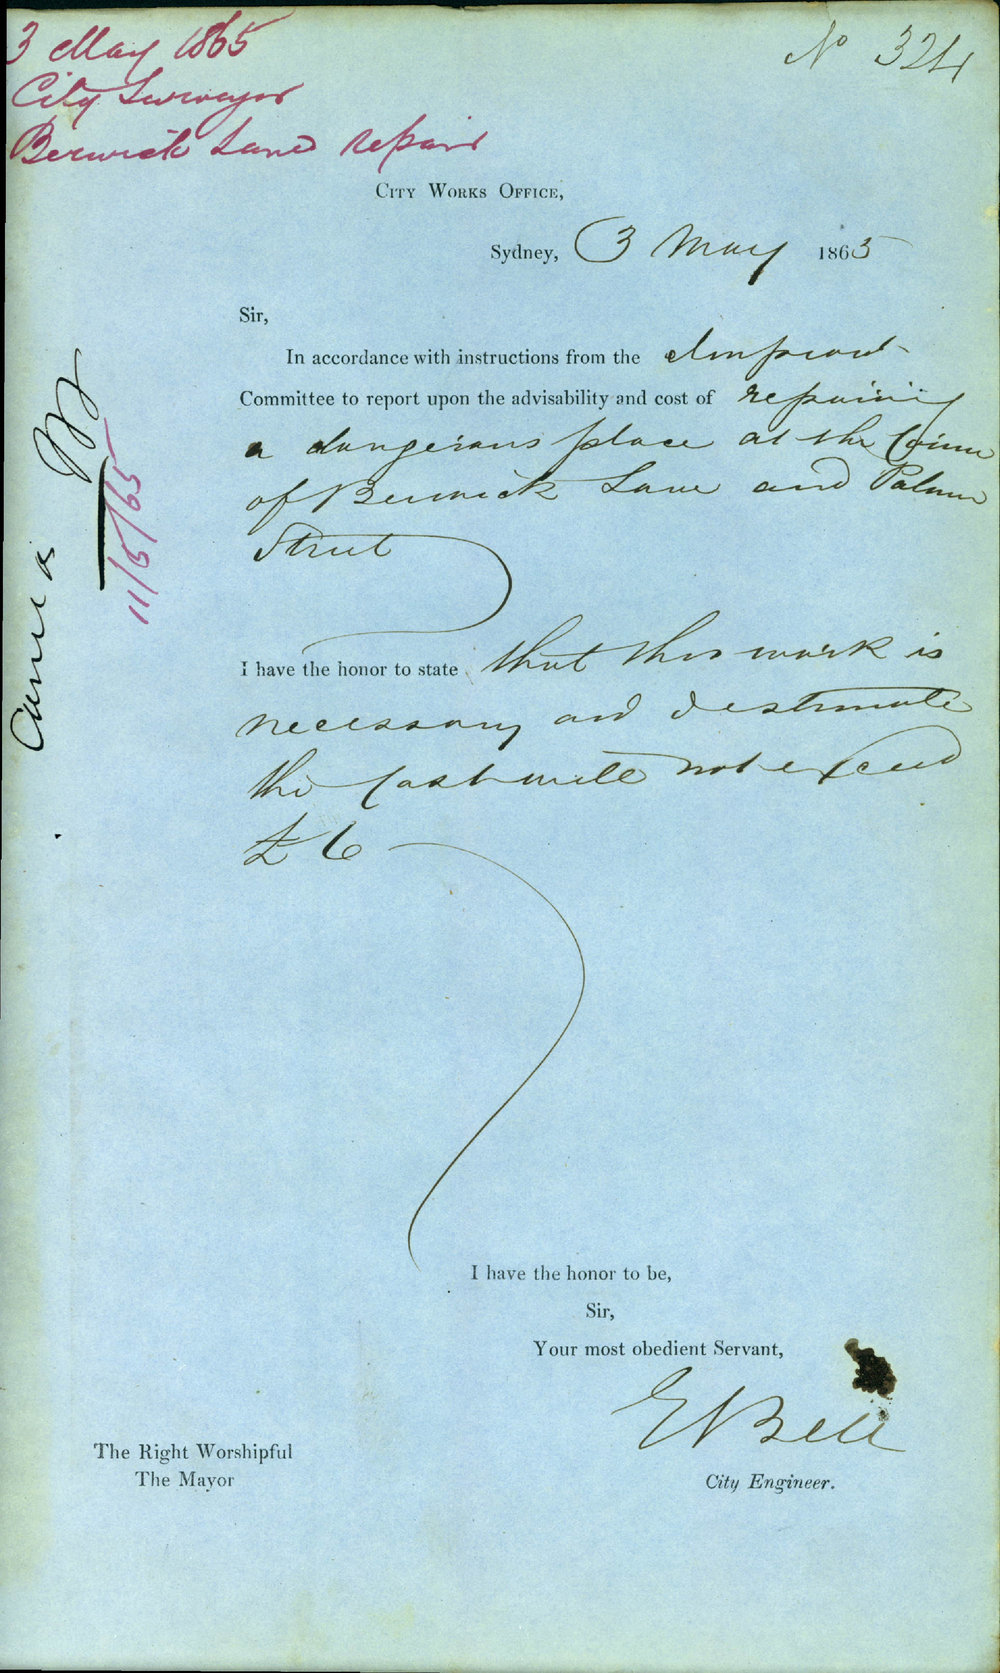 3 May 1865
City Surveyor
Berwick Lane repair
No 324
City Works Office,
Sydney, 3 May 1865
Sir,
In accordance with instructions from the Improvt
Committee to report upon the advisability and cost of repairing
a dangerous place at the Corner
of Berwick Lane and Palmer
Street
I have the honor to state that this work is
necessary and I estimate
the cost will not exceed
£6
I have the honor to be,
Sir,
Your most obedient Servant,
E Bell
City Engineer.
The Right Worshipful
The Mayor
11/5/65